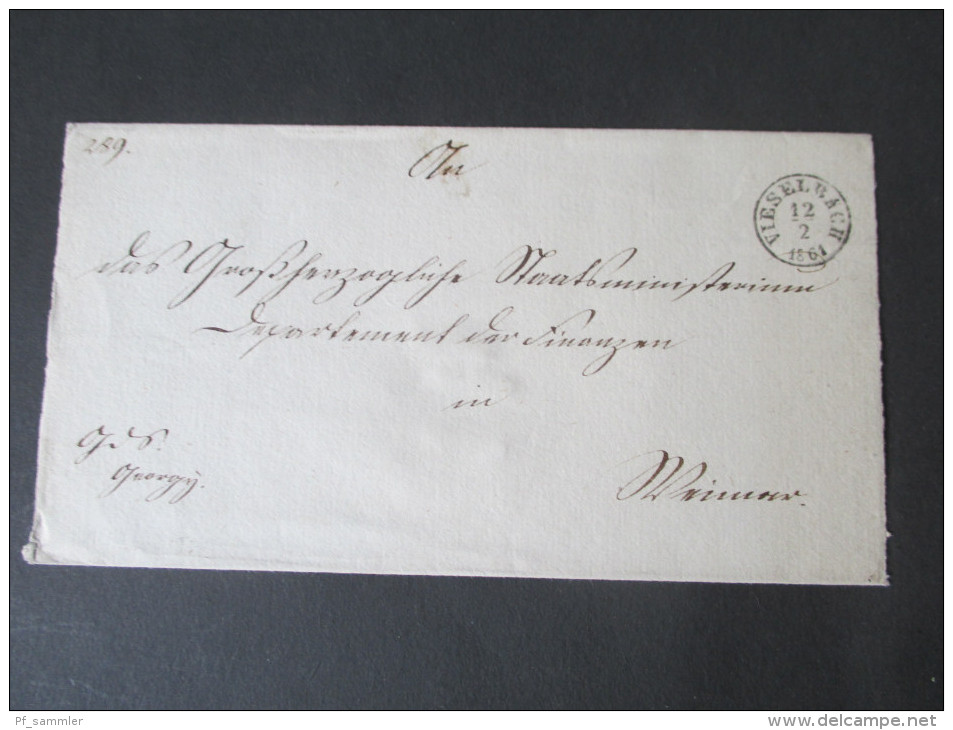 289.
An
VIESELBACH
12
2
1861
das Großherzogliche Staatsministerium
Departement der Finanzen
in
G. d. S.
Georgy.
Weimar.
Pf_sammler
www.delcampe.net